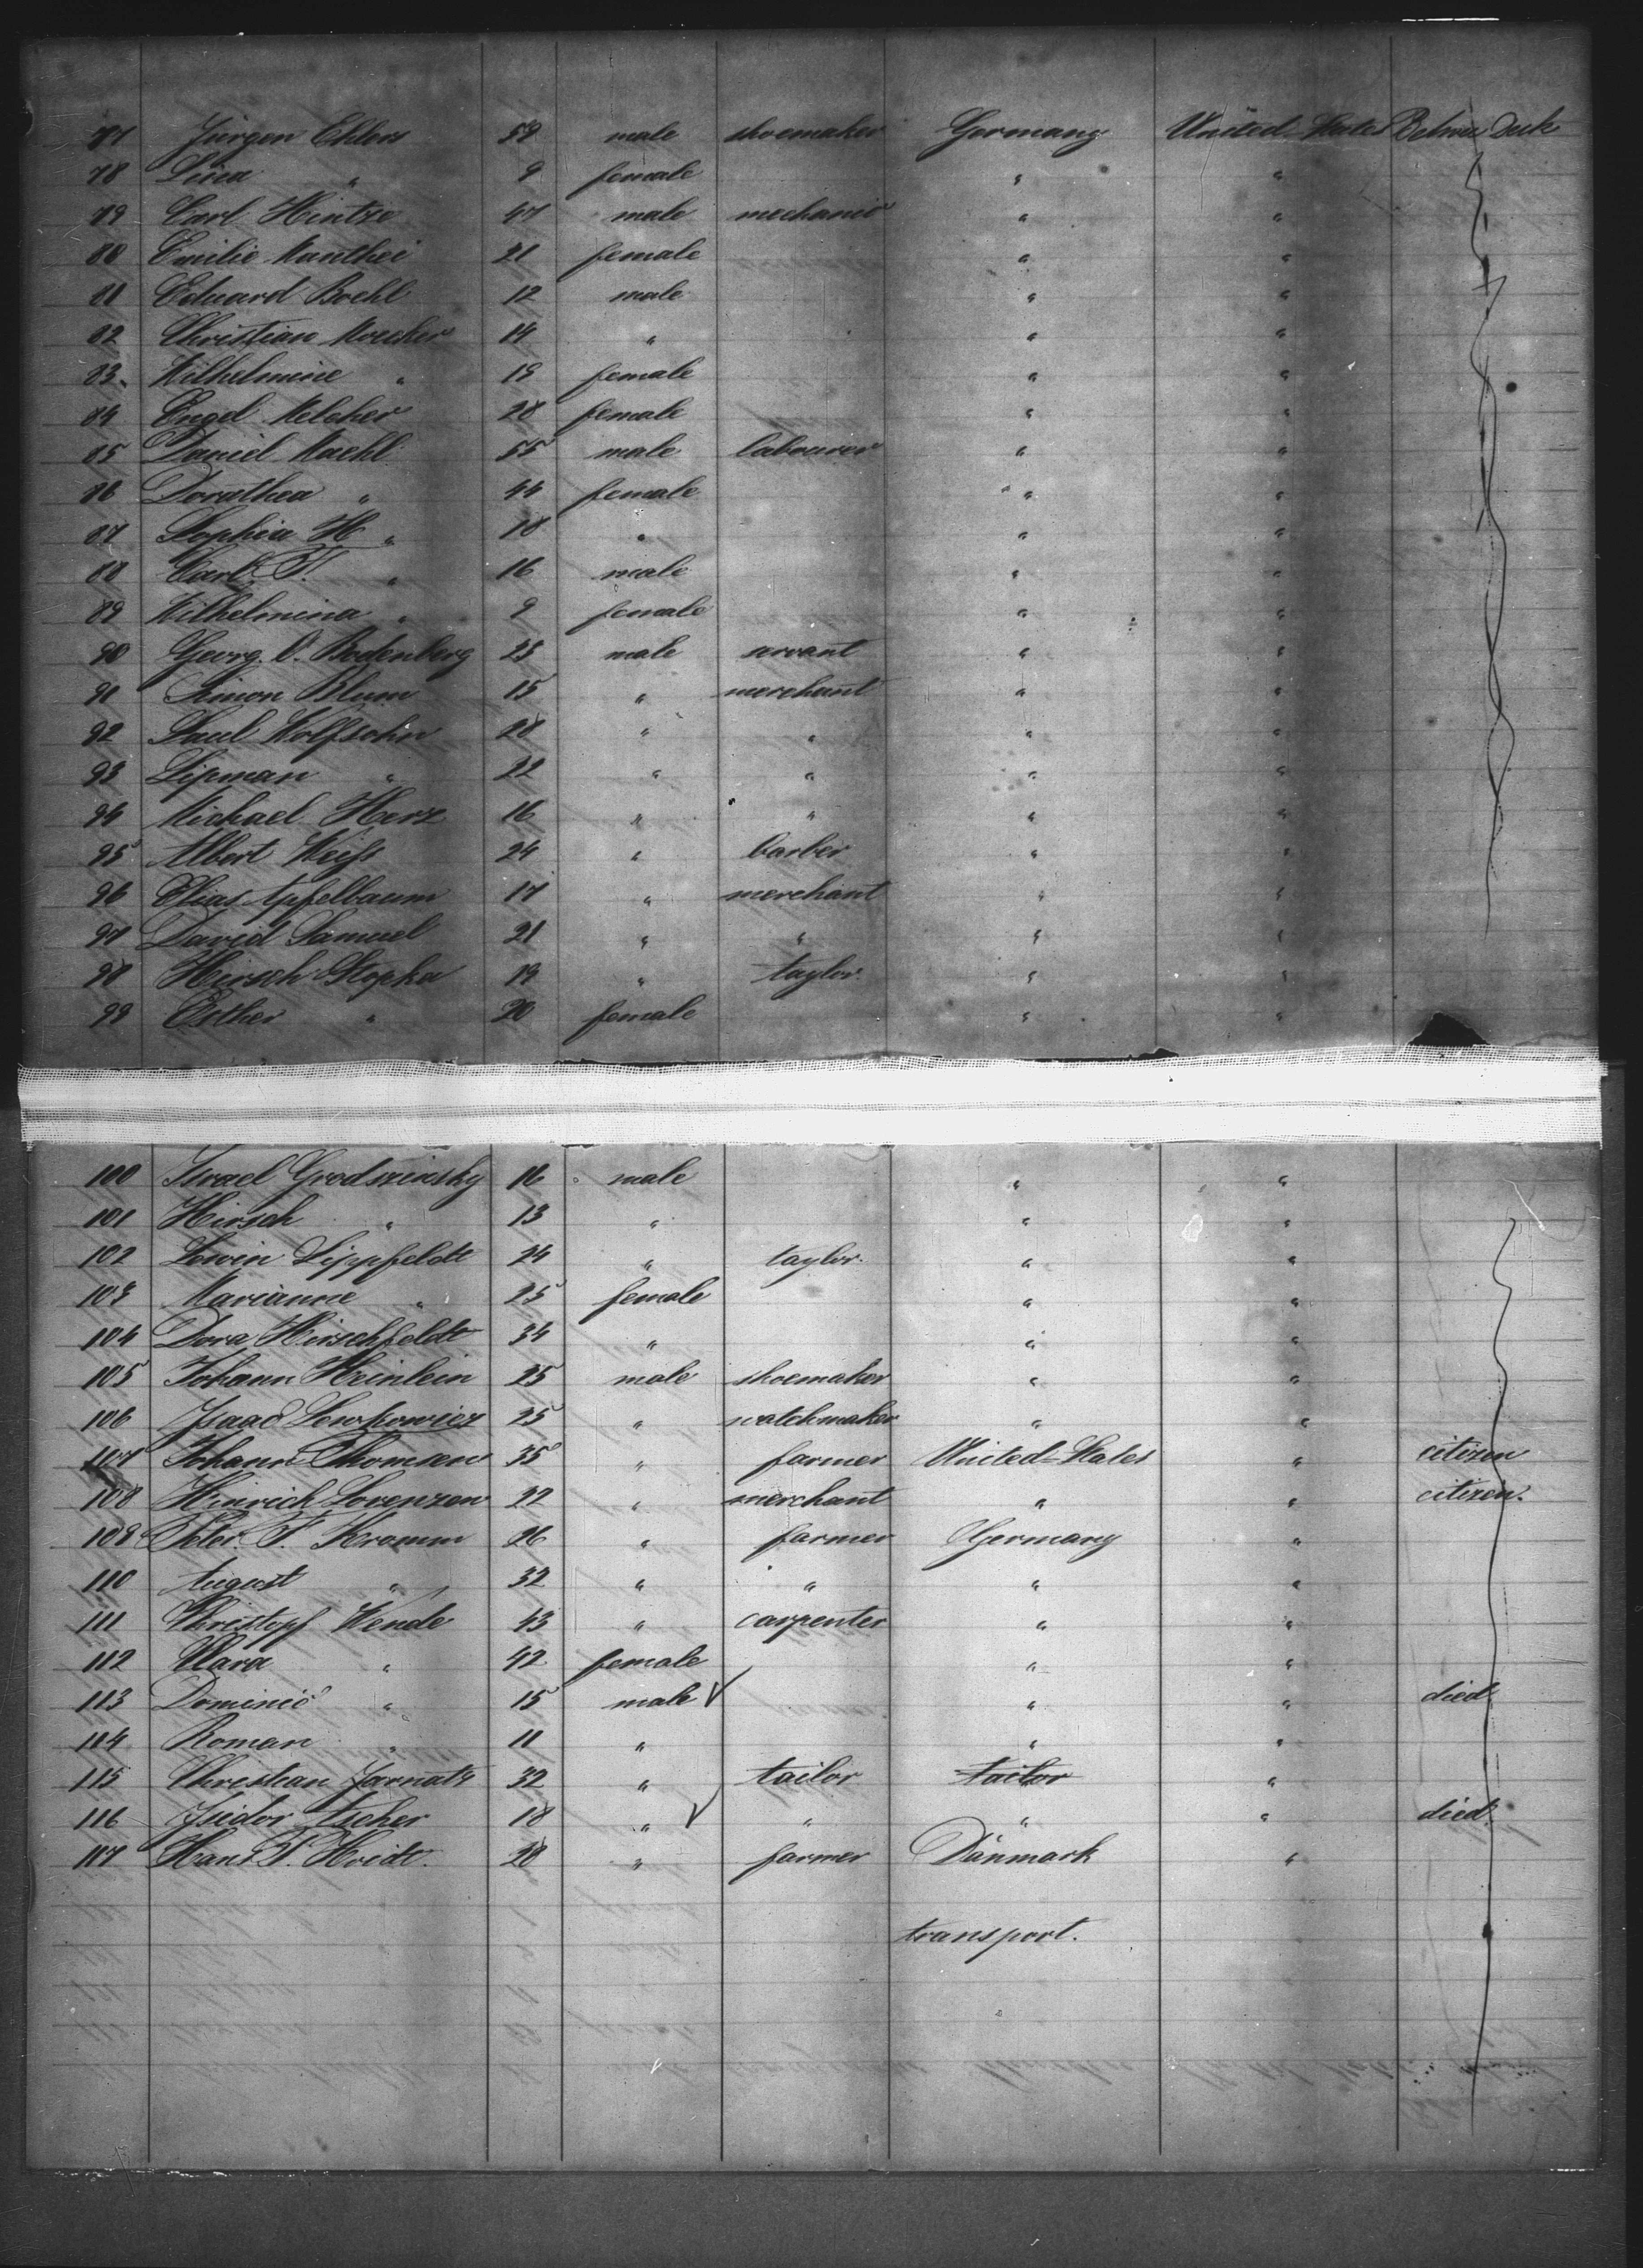 77 Jürgen Ehlers 59 male shoemaker Germany United States Betwee Deck
78 Lina " 9 female " "
79 Carl Hintze 47 male mechanic " "
80 Emilie Manthei 21 female " "
81 Eduard Boehl 12 male " "
82 Christian 14 " " "
83 Wilhelmine " 19 female " "
84 Engel Melcher 28 female " "
85 Daniel Maehl 55 male labourer " "
86 Dorathea " 44 female " "
87 Sophia H " 18 " " "
88 Carl F. " 16 male " "
89 Wilhelmina " 9 female " "
90 Georg. C. Bodenberg 23 male servant " "
91 Simon Blum 15 " merchant " "
92 Saul Wolfsohn 28 " " " "
93 Lipman " 22 " " " "
94 Michael Herz 16 " " " "
95 Albert Weiss 24 " barber " "
96 Elias Apfelbaum 17 " merchant " "
97 David Samuel 21 " " " "
98 Hirsch Stopka 19 " taylor. " "
99 Esther " 20 female " "
100 Israel Grodszinsky 16 male " "
101 Hirsch " 13 " " "
102 Lewin Lippfeldt 24 " taylor. " "
103 Marianne " 25 female " "
104 Dora Hirschfeldt 34 " " "
105 Johann Heinlein 25 male shoemaker " "
106 Isaac Lewkowicz 25 " watchmaker " "
107 Johann Thomsen 35 " farmer United-States " citizen
108 Hinrich Lorenzen 22 " merchant " " citizen.
109 Peter F. Kromm 26 " farmer Germany "
110 August " 32 " " " "
111 Christopf Wende 43 " carpenter " "
112 Clara " 42 female " "
113 Dominic " 15 male " " died
114 Roman " 11 " " "
115 Christian Jarnatz 32 " tailor tailor "
116 Isidor Ascher 18 " " " " died.
117 Hans P. Hvidt. 28 " farmer Dänmark "
transport.